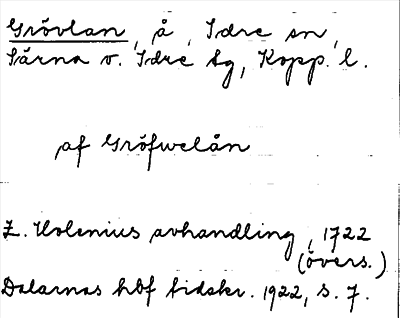 Grövlan, å, Idre sn,
Särna o. Idre tg, Kopp. l.
af Gröfwelån
Z. Holenius avhandling, 1722
(övers.)
Dalarnas hbf tidskr. 1922, s. 7.